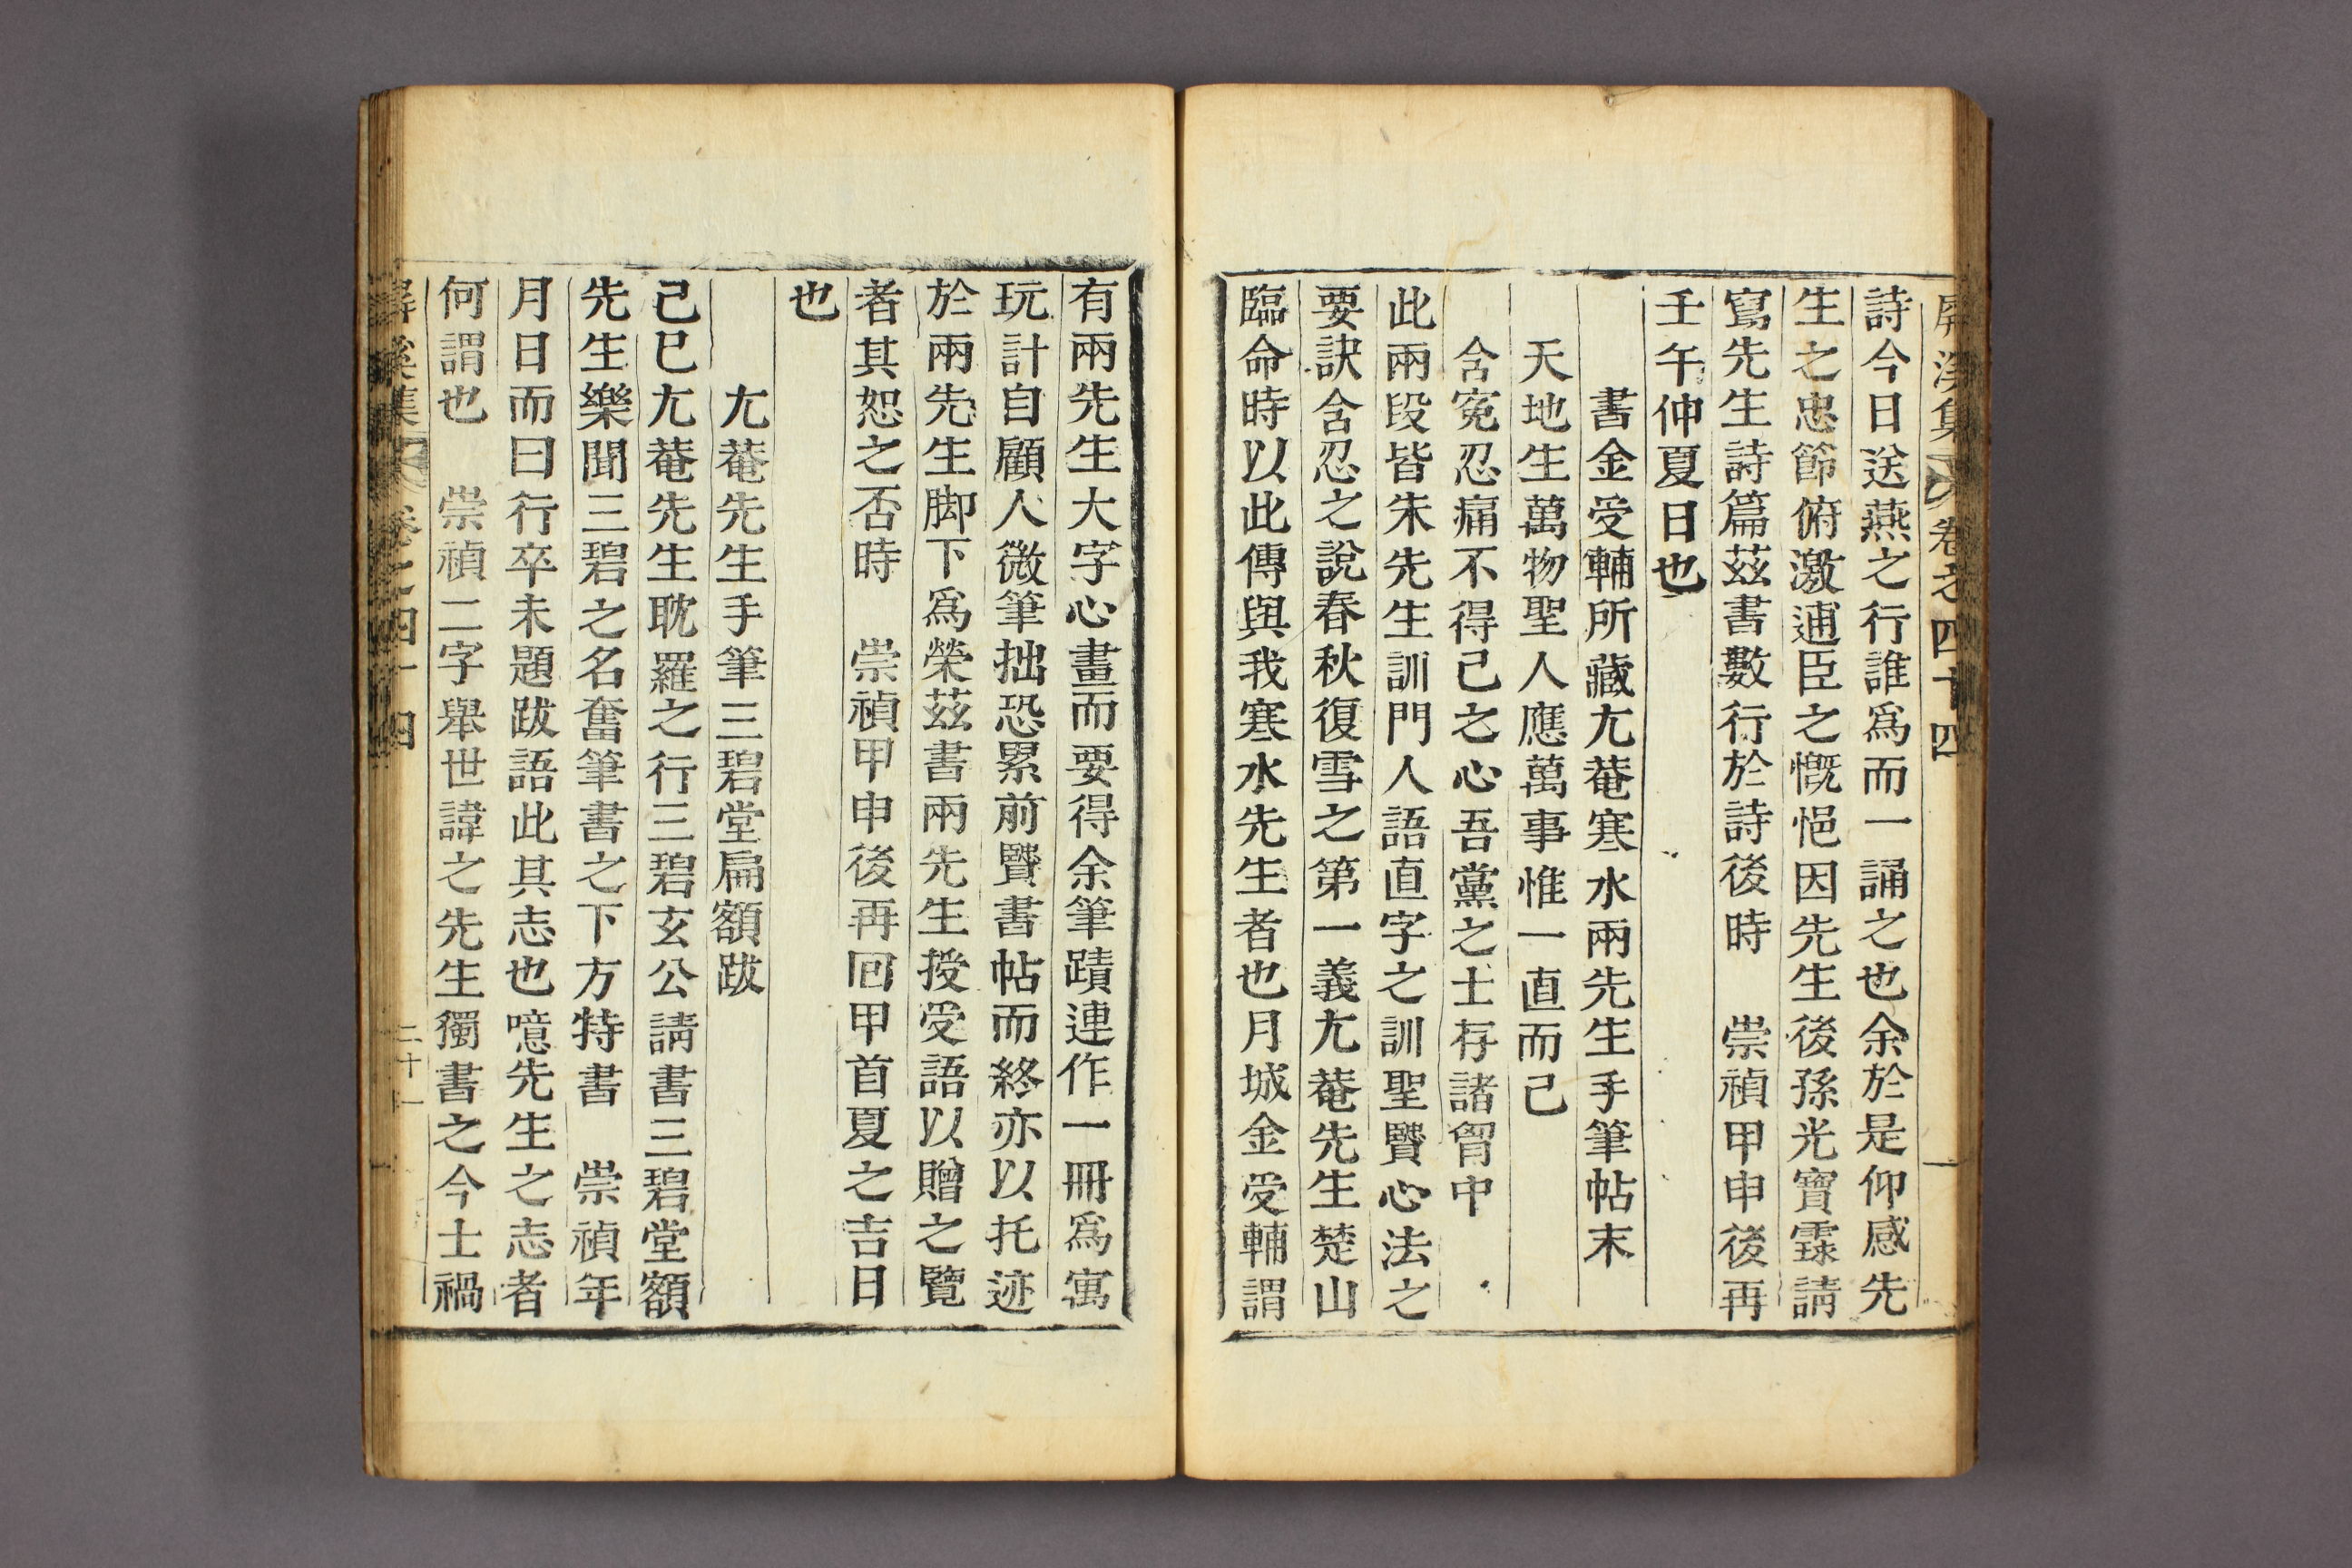 屛溪集 卷之四十四
詩今日送燕之行誰爲而一誦之也余於是仰感先
生之忠節俯激逋臣之慨悒因先生後孫光寶霂請
寫先生詩篇茲書數行於詩後時　崇禎甲申後再
壬午仲夏日也
書金受輔所藏尤菴寒水兩先生手筆帖末
天地生萬物聖人應萬事惟一直而已
含寃忍痛不得已之心吾黨之士存諸胷中
此兩段皆朱先生訓門人語直字之訓聖賢心法之
要訣含忍之說春秋復雪之第一義尤菴先生楚山
臨命時以此傳與我寒水先生者也月城金受輔謂
有兩先生大字心畫而要得余筆蹟連作一冊爲寓
玩計自顧人微筆拙恐累前賢書帖而終亦以托迹
於兩先生脚下爲榮茲書兩先生授受語以贈之覽
者其恕之否時　崇禎甲申後再回甲首夏之吉日
也
尤菴先生手筆三碧堂扁額跋
己巳尤菴先生耽羅之行三碧玄公請書三碧堂額
先生樂聞三碧之名奮筆書之下方特書　崇禎年
月日而曰行卒未題跋語此其志也噫先生之志者
何謂也　崇禎二字舉世諱之先生獨書之今士禍
屛溪集 卷之四十四 二十一